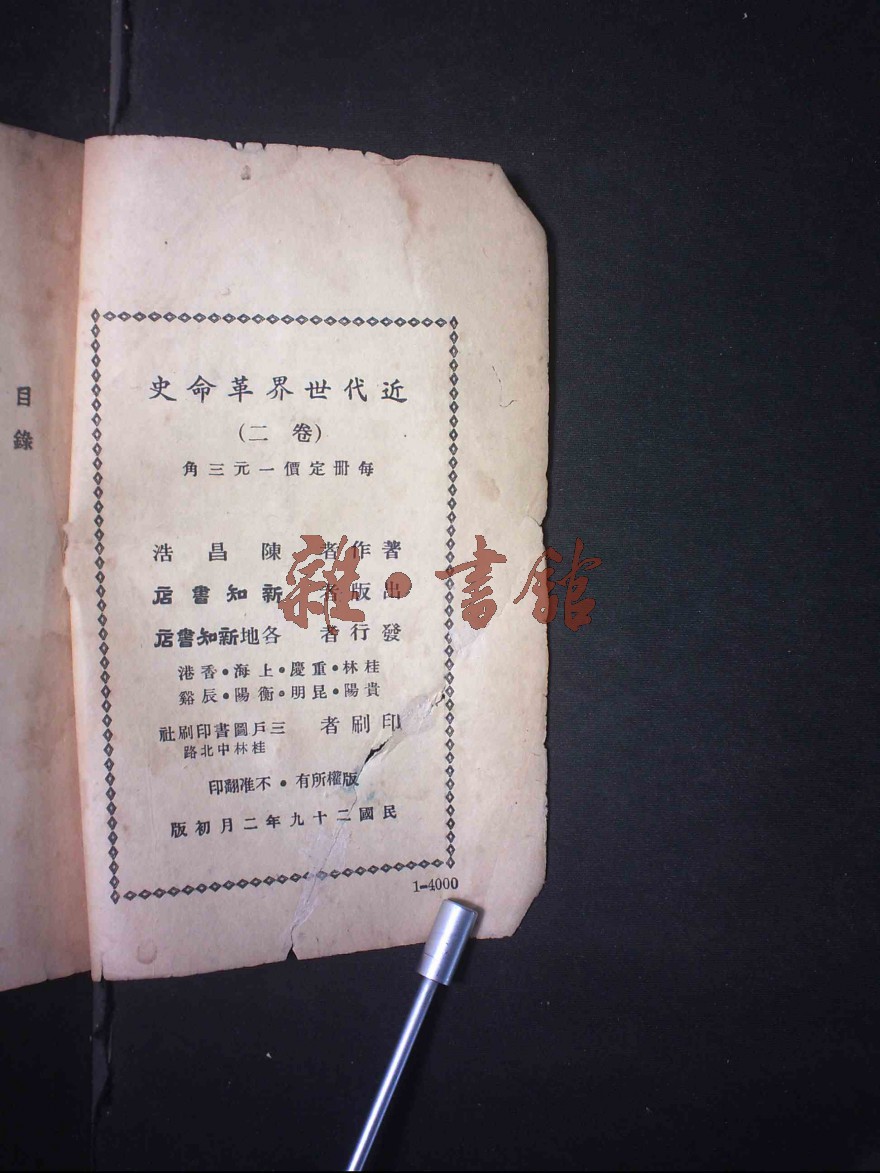 近代世界革命史
(卷二)
每册定價一元三角
著作者 陳昌浩
出版者 新知書店
發行者 各地新知書店
桂林•重慶•上海•香港
貴陽•昆明•衡陽•辰谿
印刷者 三戶圖書印刷社
桂林中北路
版權所有•不准翻印
民國二十九年二月初版
1-4000
目錄
雜•書館